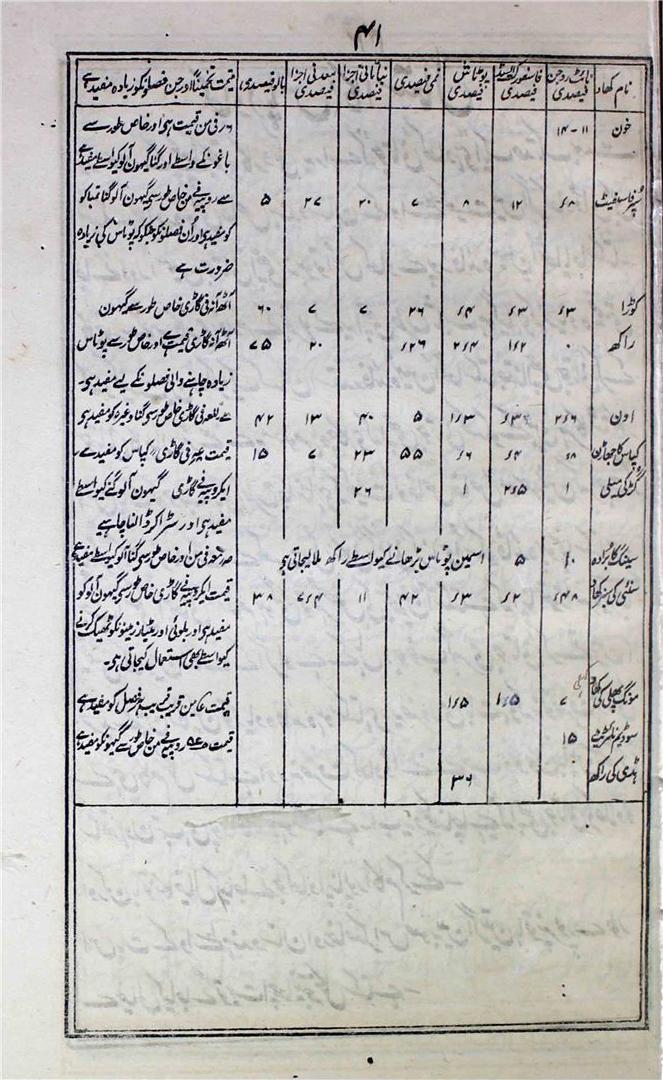 ۴۱
نام کھاد | نائٹروجن فیصدی | فاسفورک ایسڈ فیصدی | پوٹاش فیصدی | نمی فیصدی | نباتاتی اجزا فیصدی | معدنی اجزا فیصدی | بالو فیصدی | قیمت تخمیناً اور جن فصلونکو زیادہ مفید ہے
خون | ۱۱-۱۴ | فی من قیمت ہی اور خاص طور سے
باغونکے واسطے اور گنا گیہون آلو کیواسطے مفید ہے
سپر فاسفیٹ | ء۶۸ | ۱۲ | ۸ | ۷ | ۲۰ | ۲۷ | ۵ | روپیہ فی من خاص طور سی گیہون آلو گنا تمباکو
کو مفید ہی اور اُن فصلونکو جنکو پوٹاس کی زیادہ
ضرورت ہے
کوڑا | ء۳ | ء۳ | ء۴ | ۲۶ | ۷ | ۷ | ۶۰ | آٹھ آنہ فی گاڑی خاص طور سے گیہون
راکھ | ۰ | ۱ء۲ | ۲ء۴ | ۲۶ء | ۲۰ | ۷۵ | آٹھ آنہ گاڑی قیمت ہے اور خاص طور سے پوٹاس
زیادہ چاہنے والی فصلونکے لیے مفید ہی۔
اون | ۲ء۶ | ۱ء۳ | ۵ | ۴۰ | ۱۳ | ۴۲ | فی گاڑی خاص طور سی گنا وغیرہ کو مفید ہی
کپاس کا جھاڑن | ء۸ | ء۴ | ء۶ | ۵۵ | ۲۳ | ۷ | ۱۵ | قیمت فی گاڑی، کپاس کو مفید ہے
گڑ کی میلی | ۱ | ۲ء۵ | ۱ | ۲۶ | ایکروپیہ فی گاڑی گیہون آلو گنے کیواسطے
مفید ہی اور سڑا کر ڈالنا چاہیے
سینگ کا بُرادہ | ۱۰ | ۵ | اسمین پوٹاس بڑھانے کیواسطے راکھ ملا لیجاتی ہی | فی من اور خاص طور سی گنا آلو کیواسطے مفید ہے
سنئی کی سبز کھاد | ء۶۴۸ | ء۲ | ء۳ | ۴۲ | ۱۱ | ۷ء۴ | ۳۸ | قیمت ایکروپیہ فی گاڑی خاص طور سی گیہون آلو کو
مفید ہی اور بلوئی اور مٹیار زمینونکو ٹھیک کرنے
کیواسطے بھی استعمال کیجاتی ہی۔
مونگ پھلی کی کھاد | ۷ | ۱ء۵ | ۱ء۵ | قیمت من قریب قریب ہر فصل کو مفید ہے
سوڈیم نائٹریٹ | ۱۵ | قیمت روپیہ فی من خاص طور سے گیہونکو مفید ہے
ہڈی کی راکھ | ۳۶